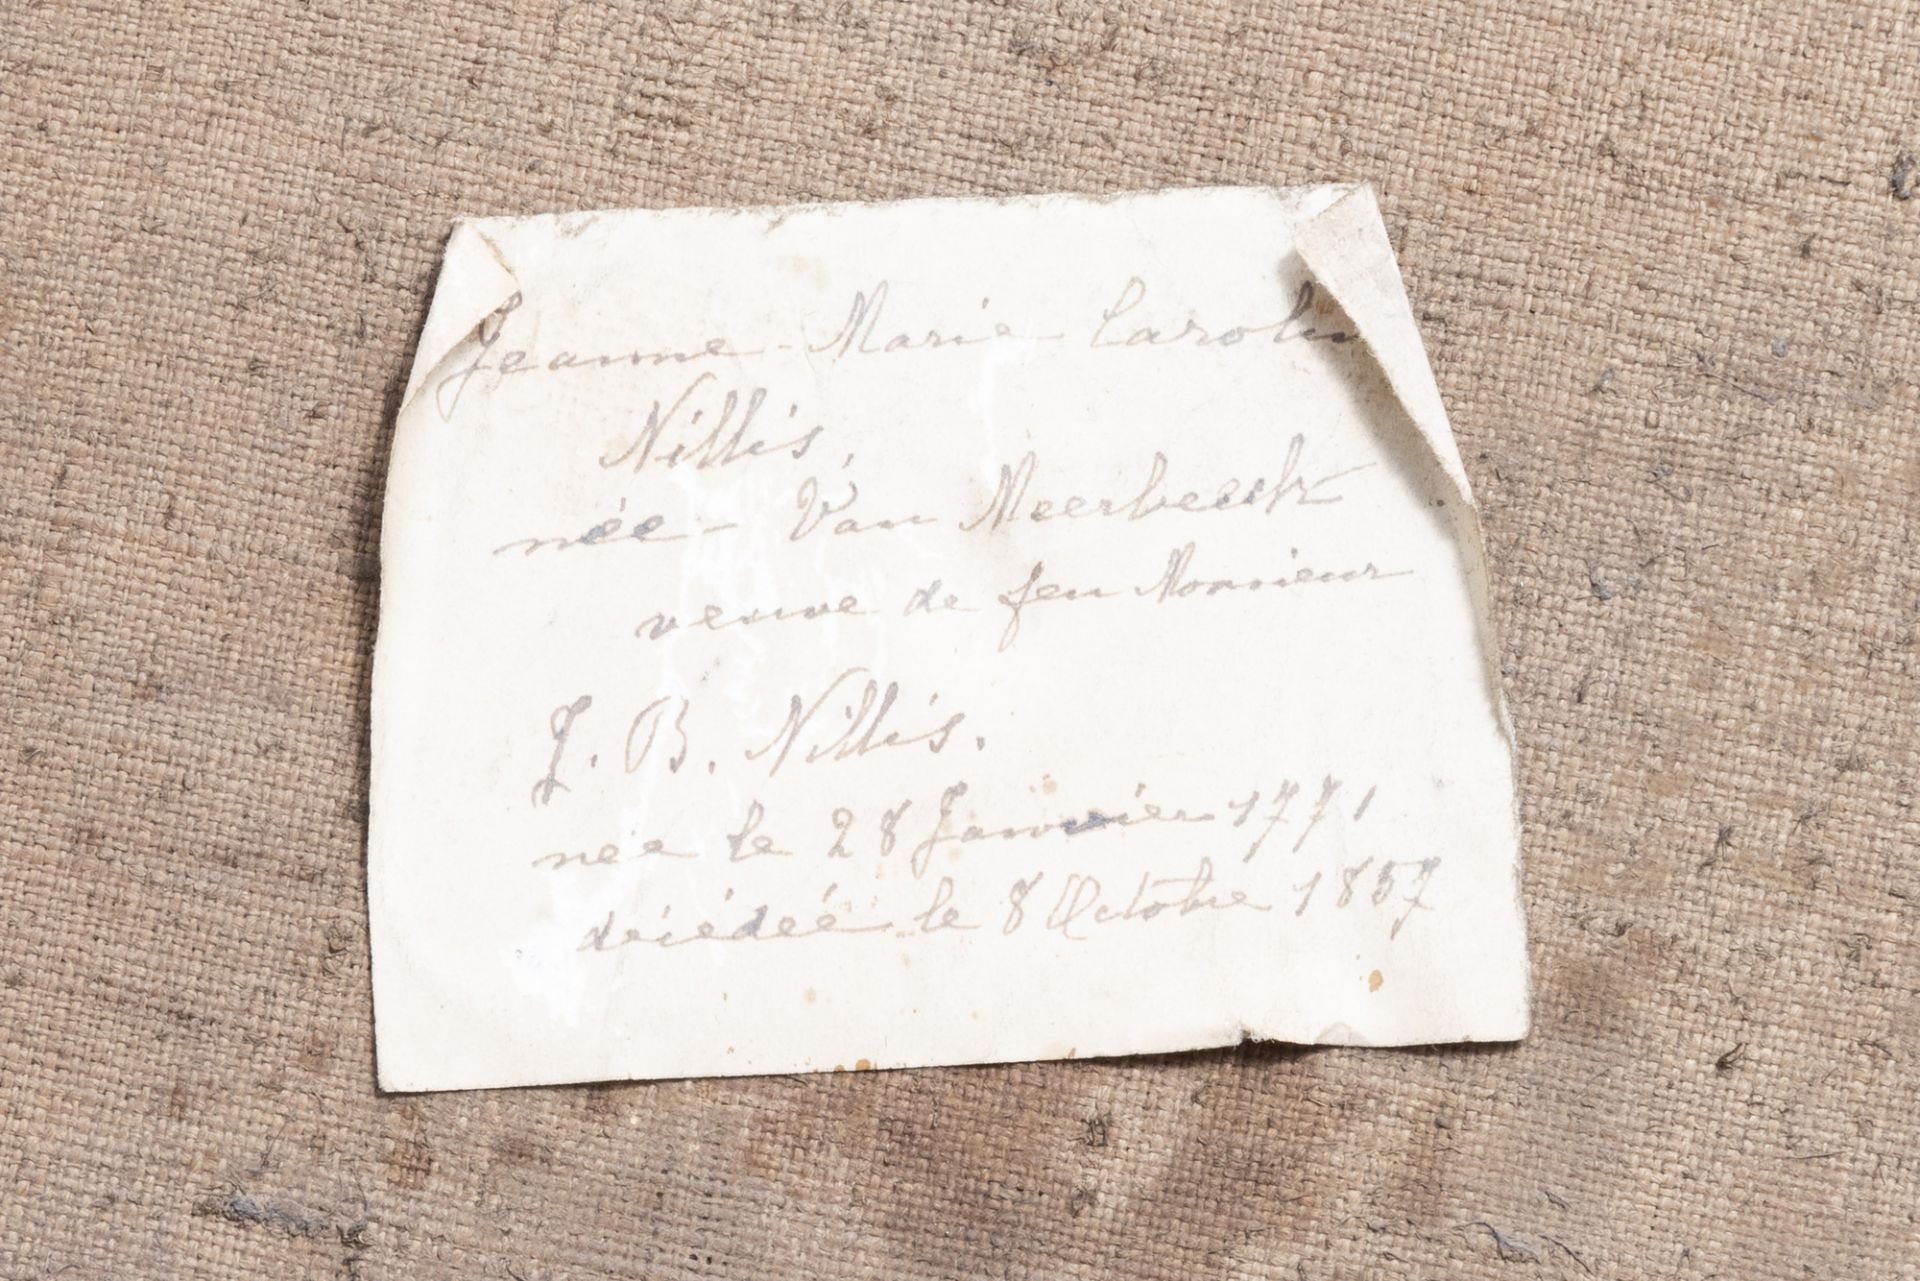 Jeanne-Marie Carolin
Nillis,
née - Van Meerbeeck
veuve de feu Monsieur
J. B. Nillis.
née le 28 Janvier 1771
décédée le 8 Octobre 1857